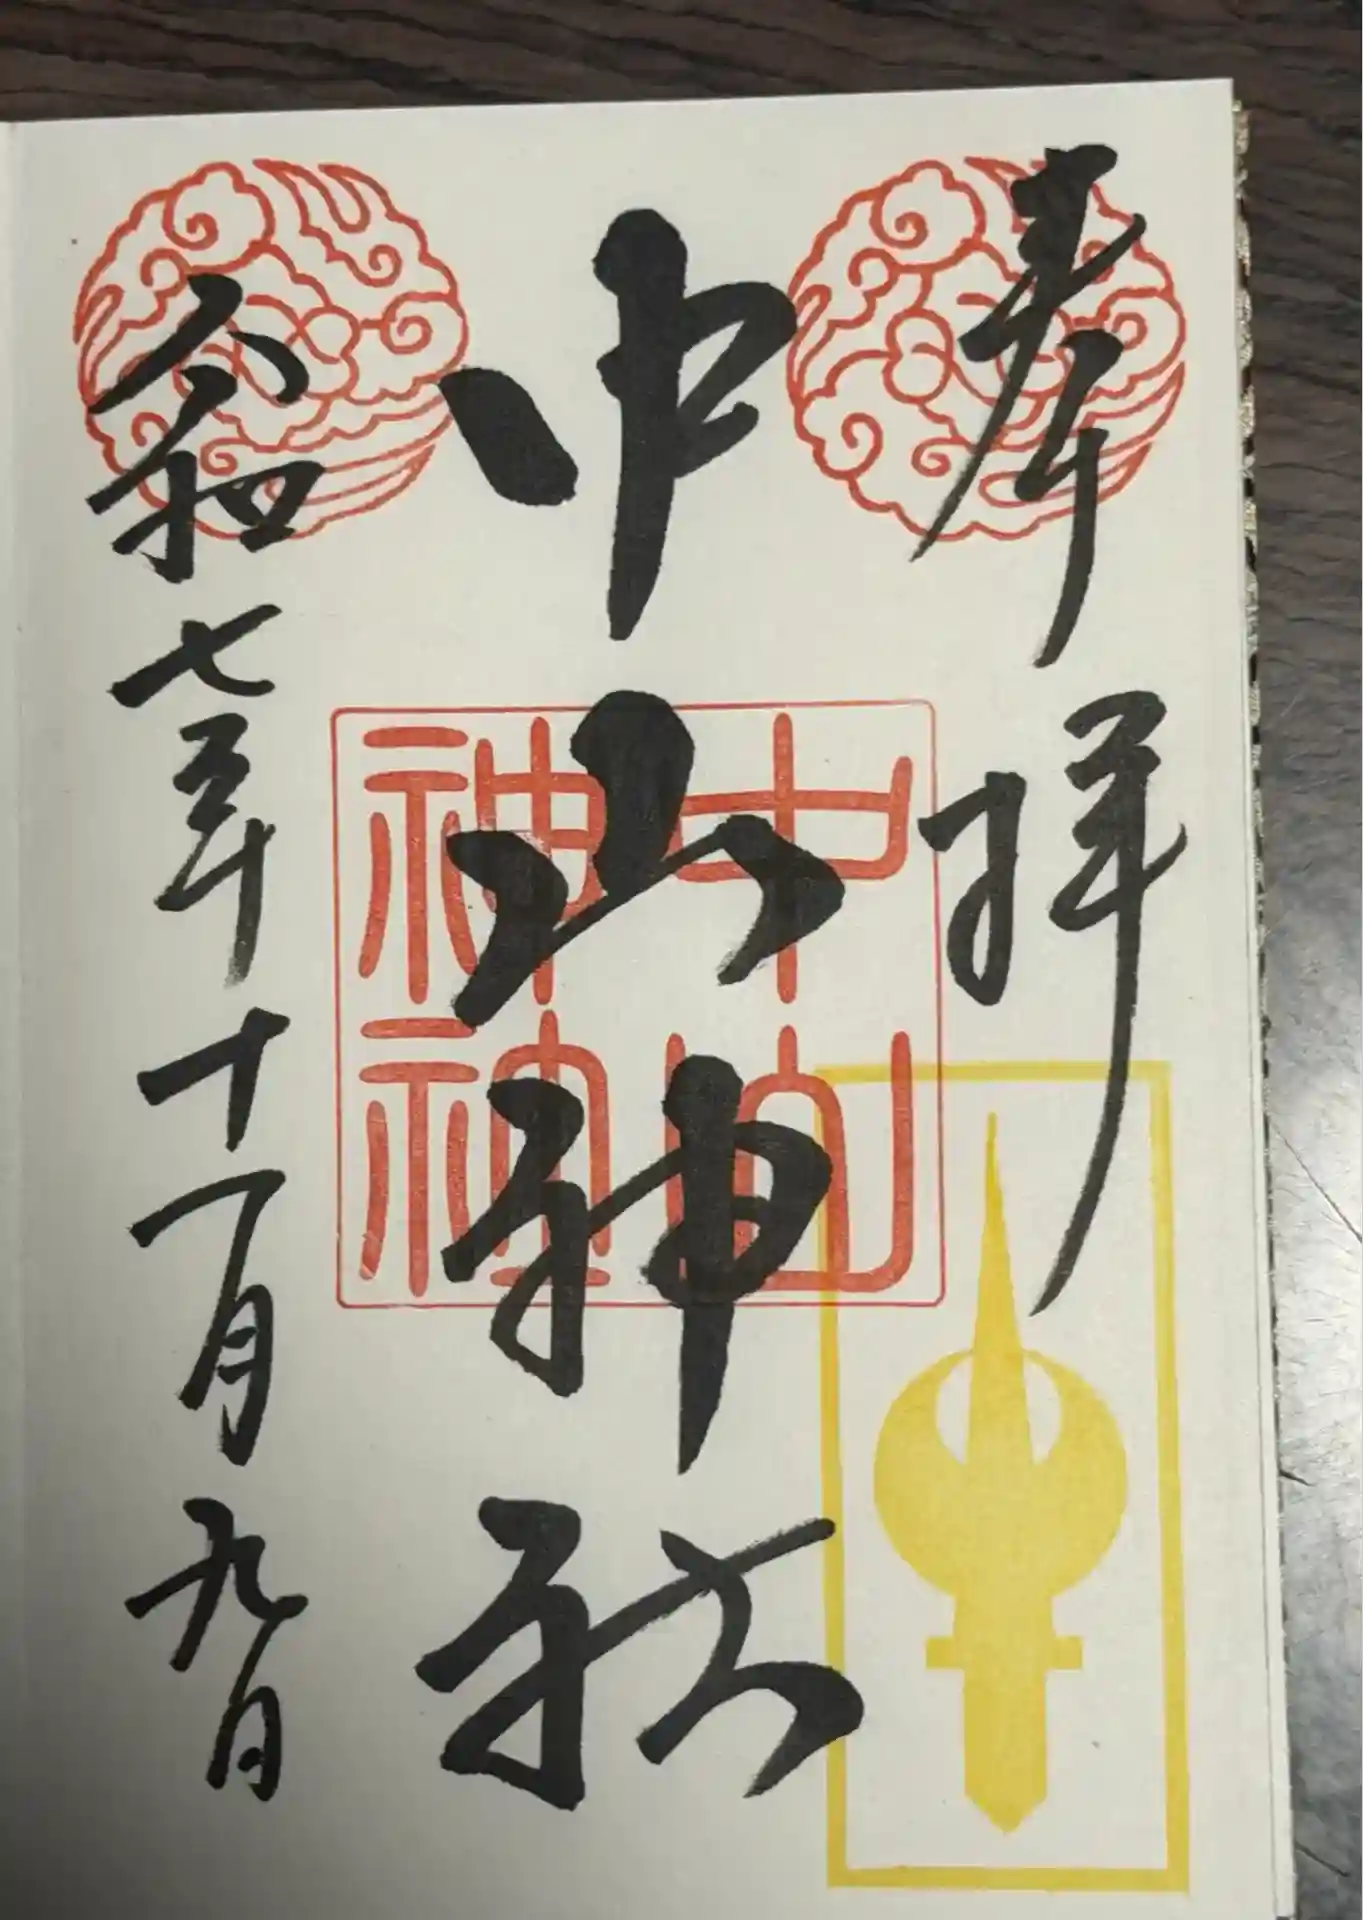 奉拝
中山神社
令和七年十一月九日
中山
神社